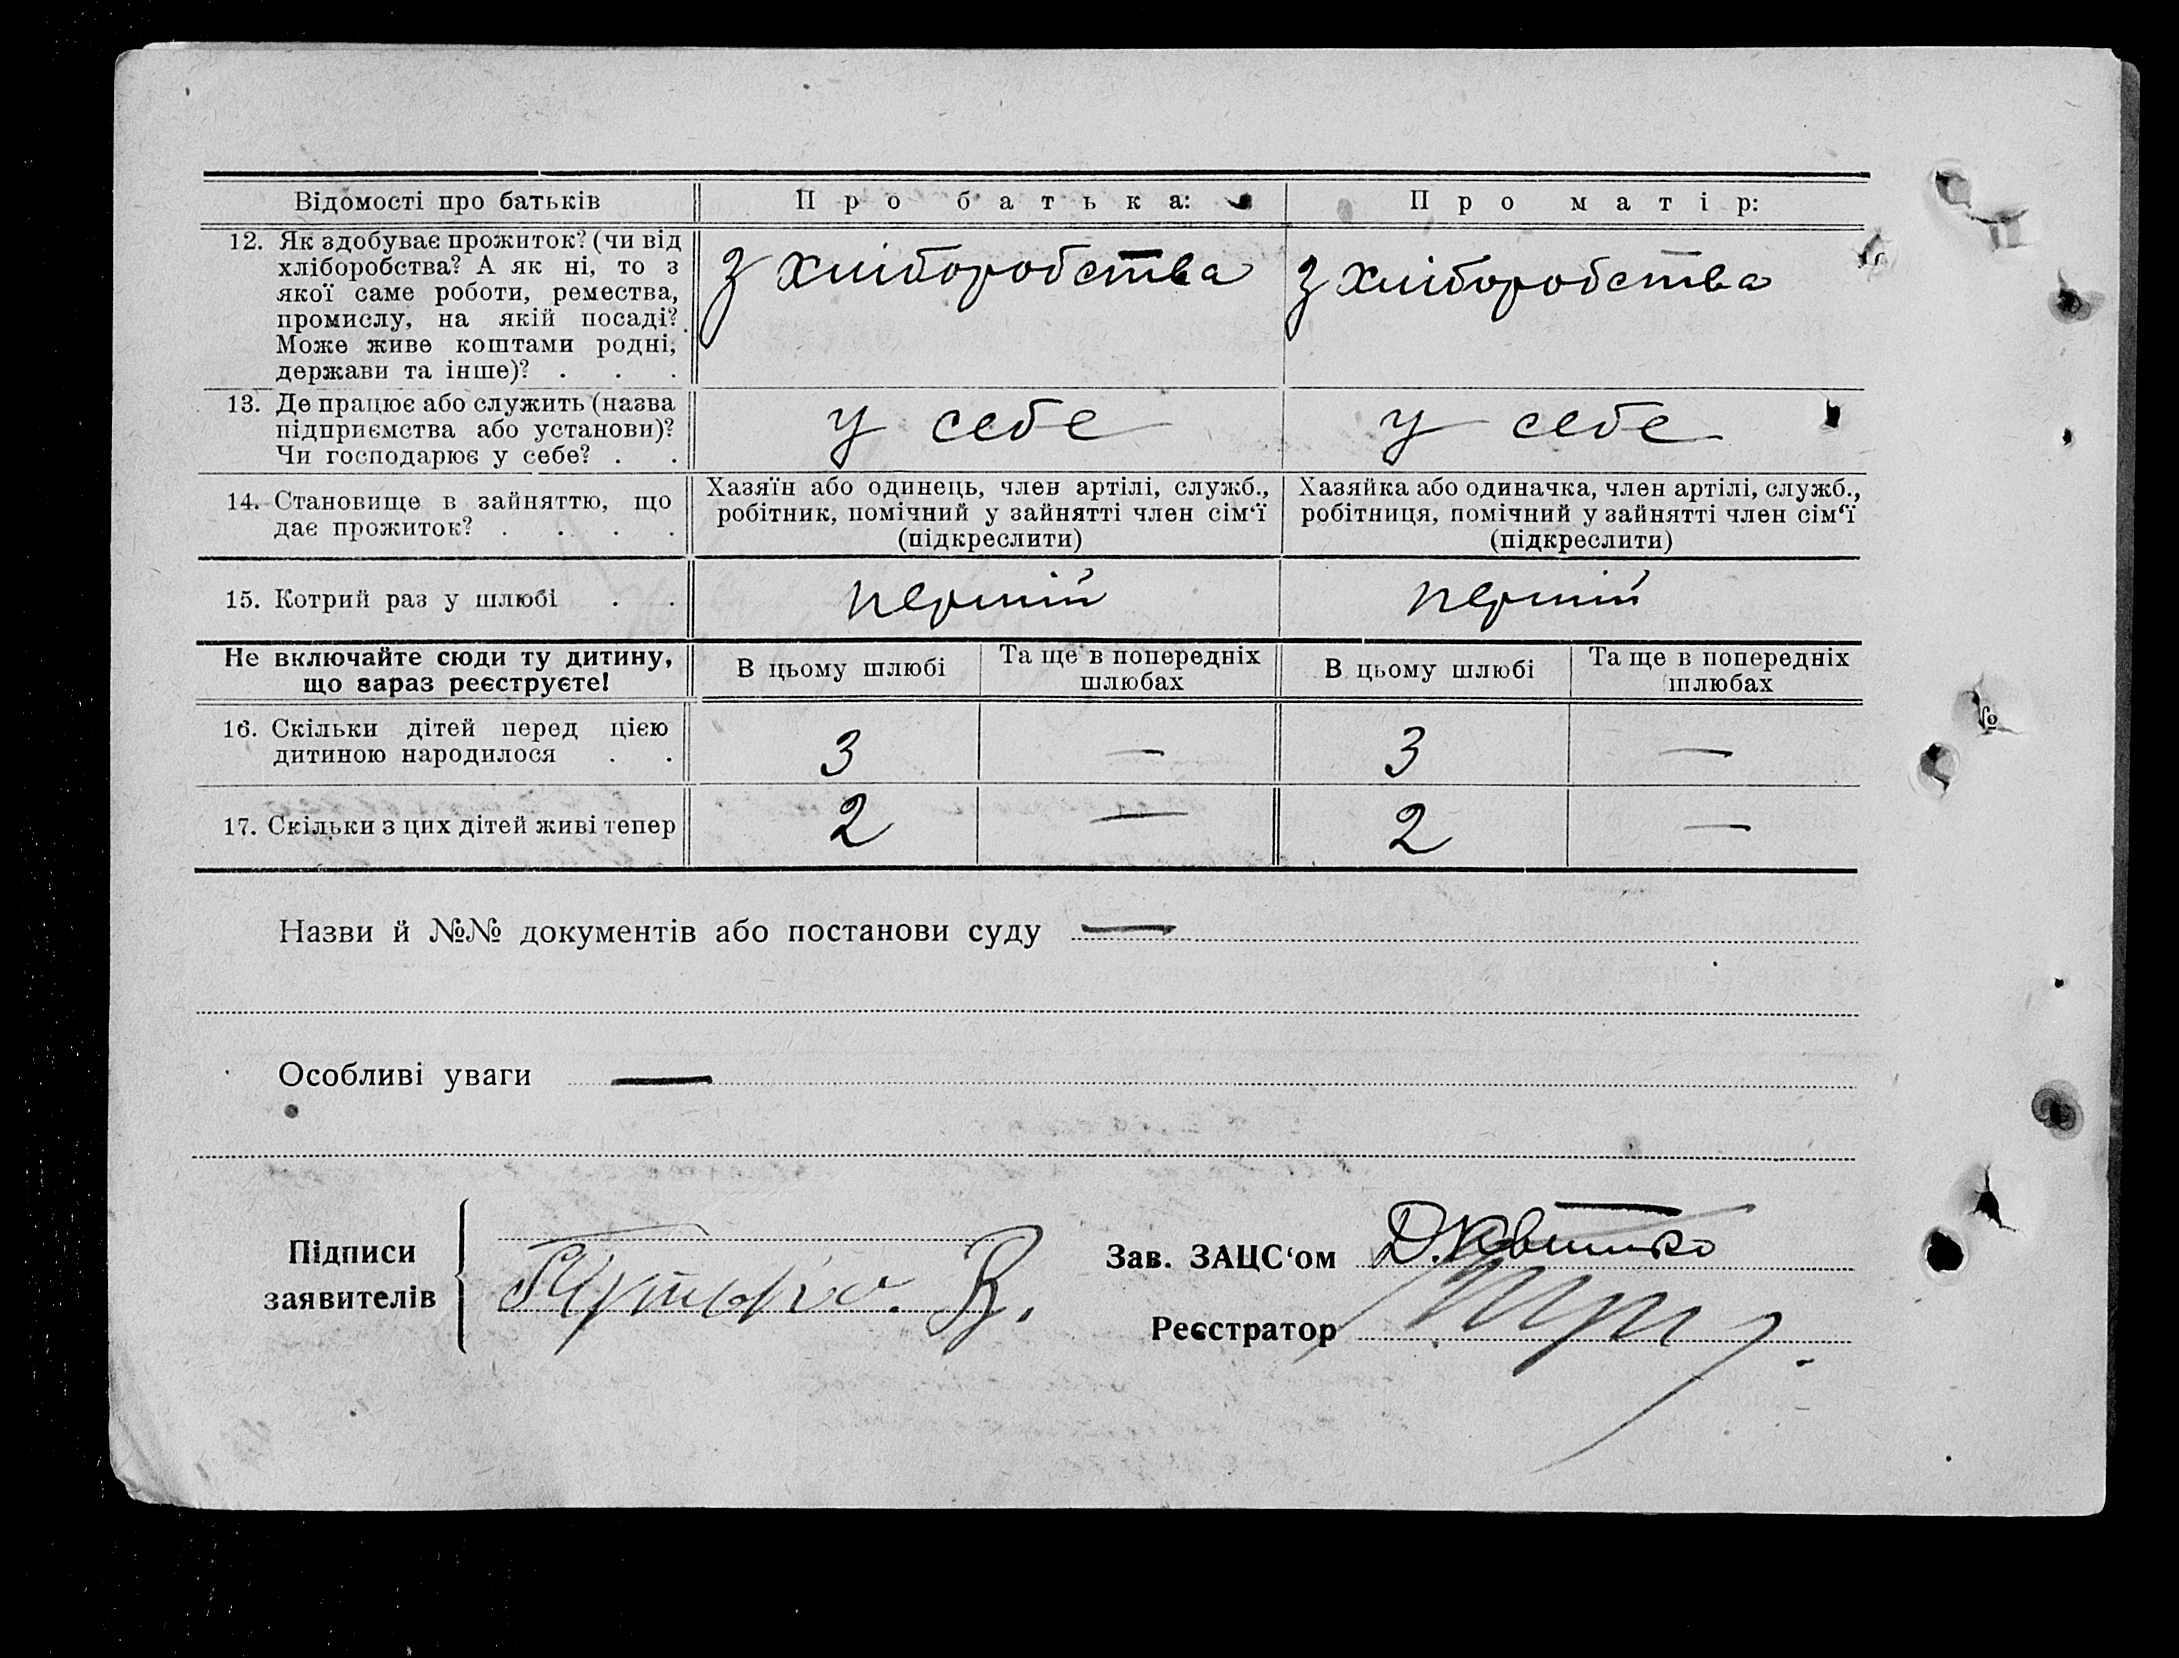 Відомості про батьків П р о б а т ь к а: П р о м а т і р:
12. Як здобуває прожиток? (чи від
хліборобства? А як ні, то з
якої саме роботи, ремества,
промислу, на якій посаді?
Може живе коштами родні,
держави та інше)? . . .
З хліборобства З хліборобства
13. Де працює або служить (назва
підприємства або установи)?
Чи господарює у себе? . .
у себе у себе
14. Становище в зайняттю, що
дає прожиток? . . . .
Хазяїн або одинець, член артілі, служб.,
робітник, помічний у зайнятті член сім‘ї
(підкреслити)
Хазяйка або одиначка, член артілі, служб.,
робітниця, помічний у зайнятті член сім‘ї
(підкреслити)
15. Котрий раз у шлюбі . . перший перший
Не включайте сюди ту дитину,
що зараз реєструєте!
В цьому шлюбі
Та ще в попередніх
шлюбах
В цьому шлюбі
Та ще в попередніх
шлюбах
16. Скільки дітей перед цією
дитиною народилося . .
3 — 3 —
17. Скільки з цих дітей живі тепер 2 — 2 —
Назви й №№ документів або постанови суду —
Особливі уваги —
Підписи
заявителів
Зав. ЗАЦС‘ом Д.
Реєстратор